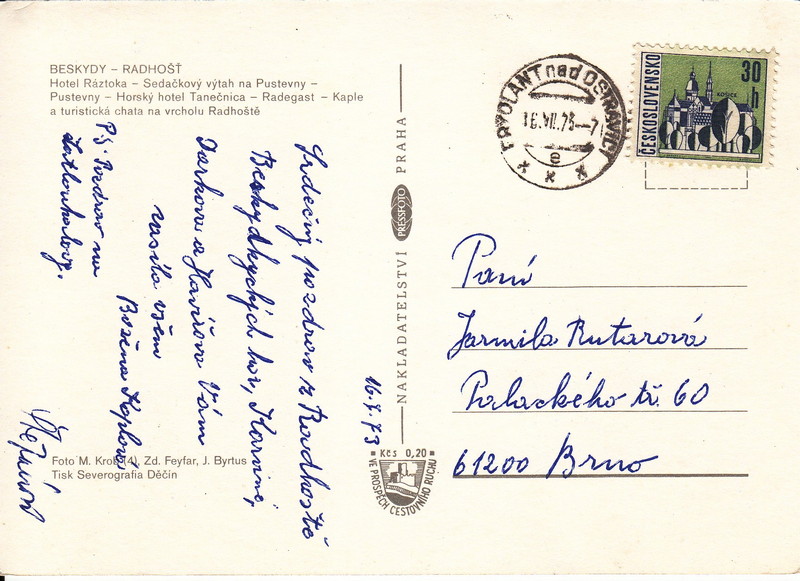 BESKYDY – RADHOŠŤ
Hotel Ráztoka – Sedačkový výtah na Pustevny –
Pustevny – Horský hotel Tanečnica – Radegast – Kaple
a turistická chata na vrcholu Radhoště
Srdečný pozdrav z Radhoště
Beskydkých hor, Karviné,
Darkova a Havířova Vám
zasílá všem
Božena
P.S. Pozdrav na
16.7.73
Foto M. Krob (4), Zd. Feyfar, J. Byrtus
Tisk Severografia Děčín
NAKLADATELSTVÍ PRESSFOTO PRAHA
Kčs 0,20
VE PROSPĚCH CESTOVNÍHO RUCHU
FRÝDLANT nad OSTRAVICÍ
16.VII.73–7
e
ČESKOSLOVENSKO
30 h
KOŠICE
Paní
Jarmila Rutarová
Palackého tř. 60
61200 Brno